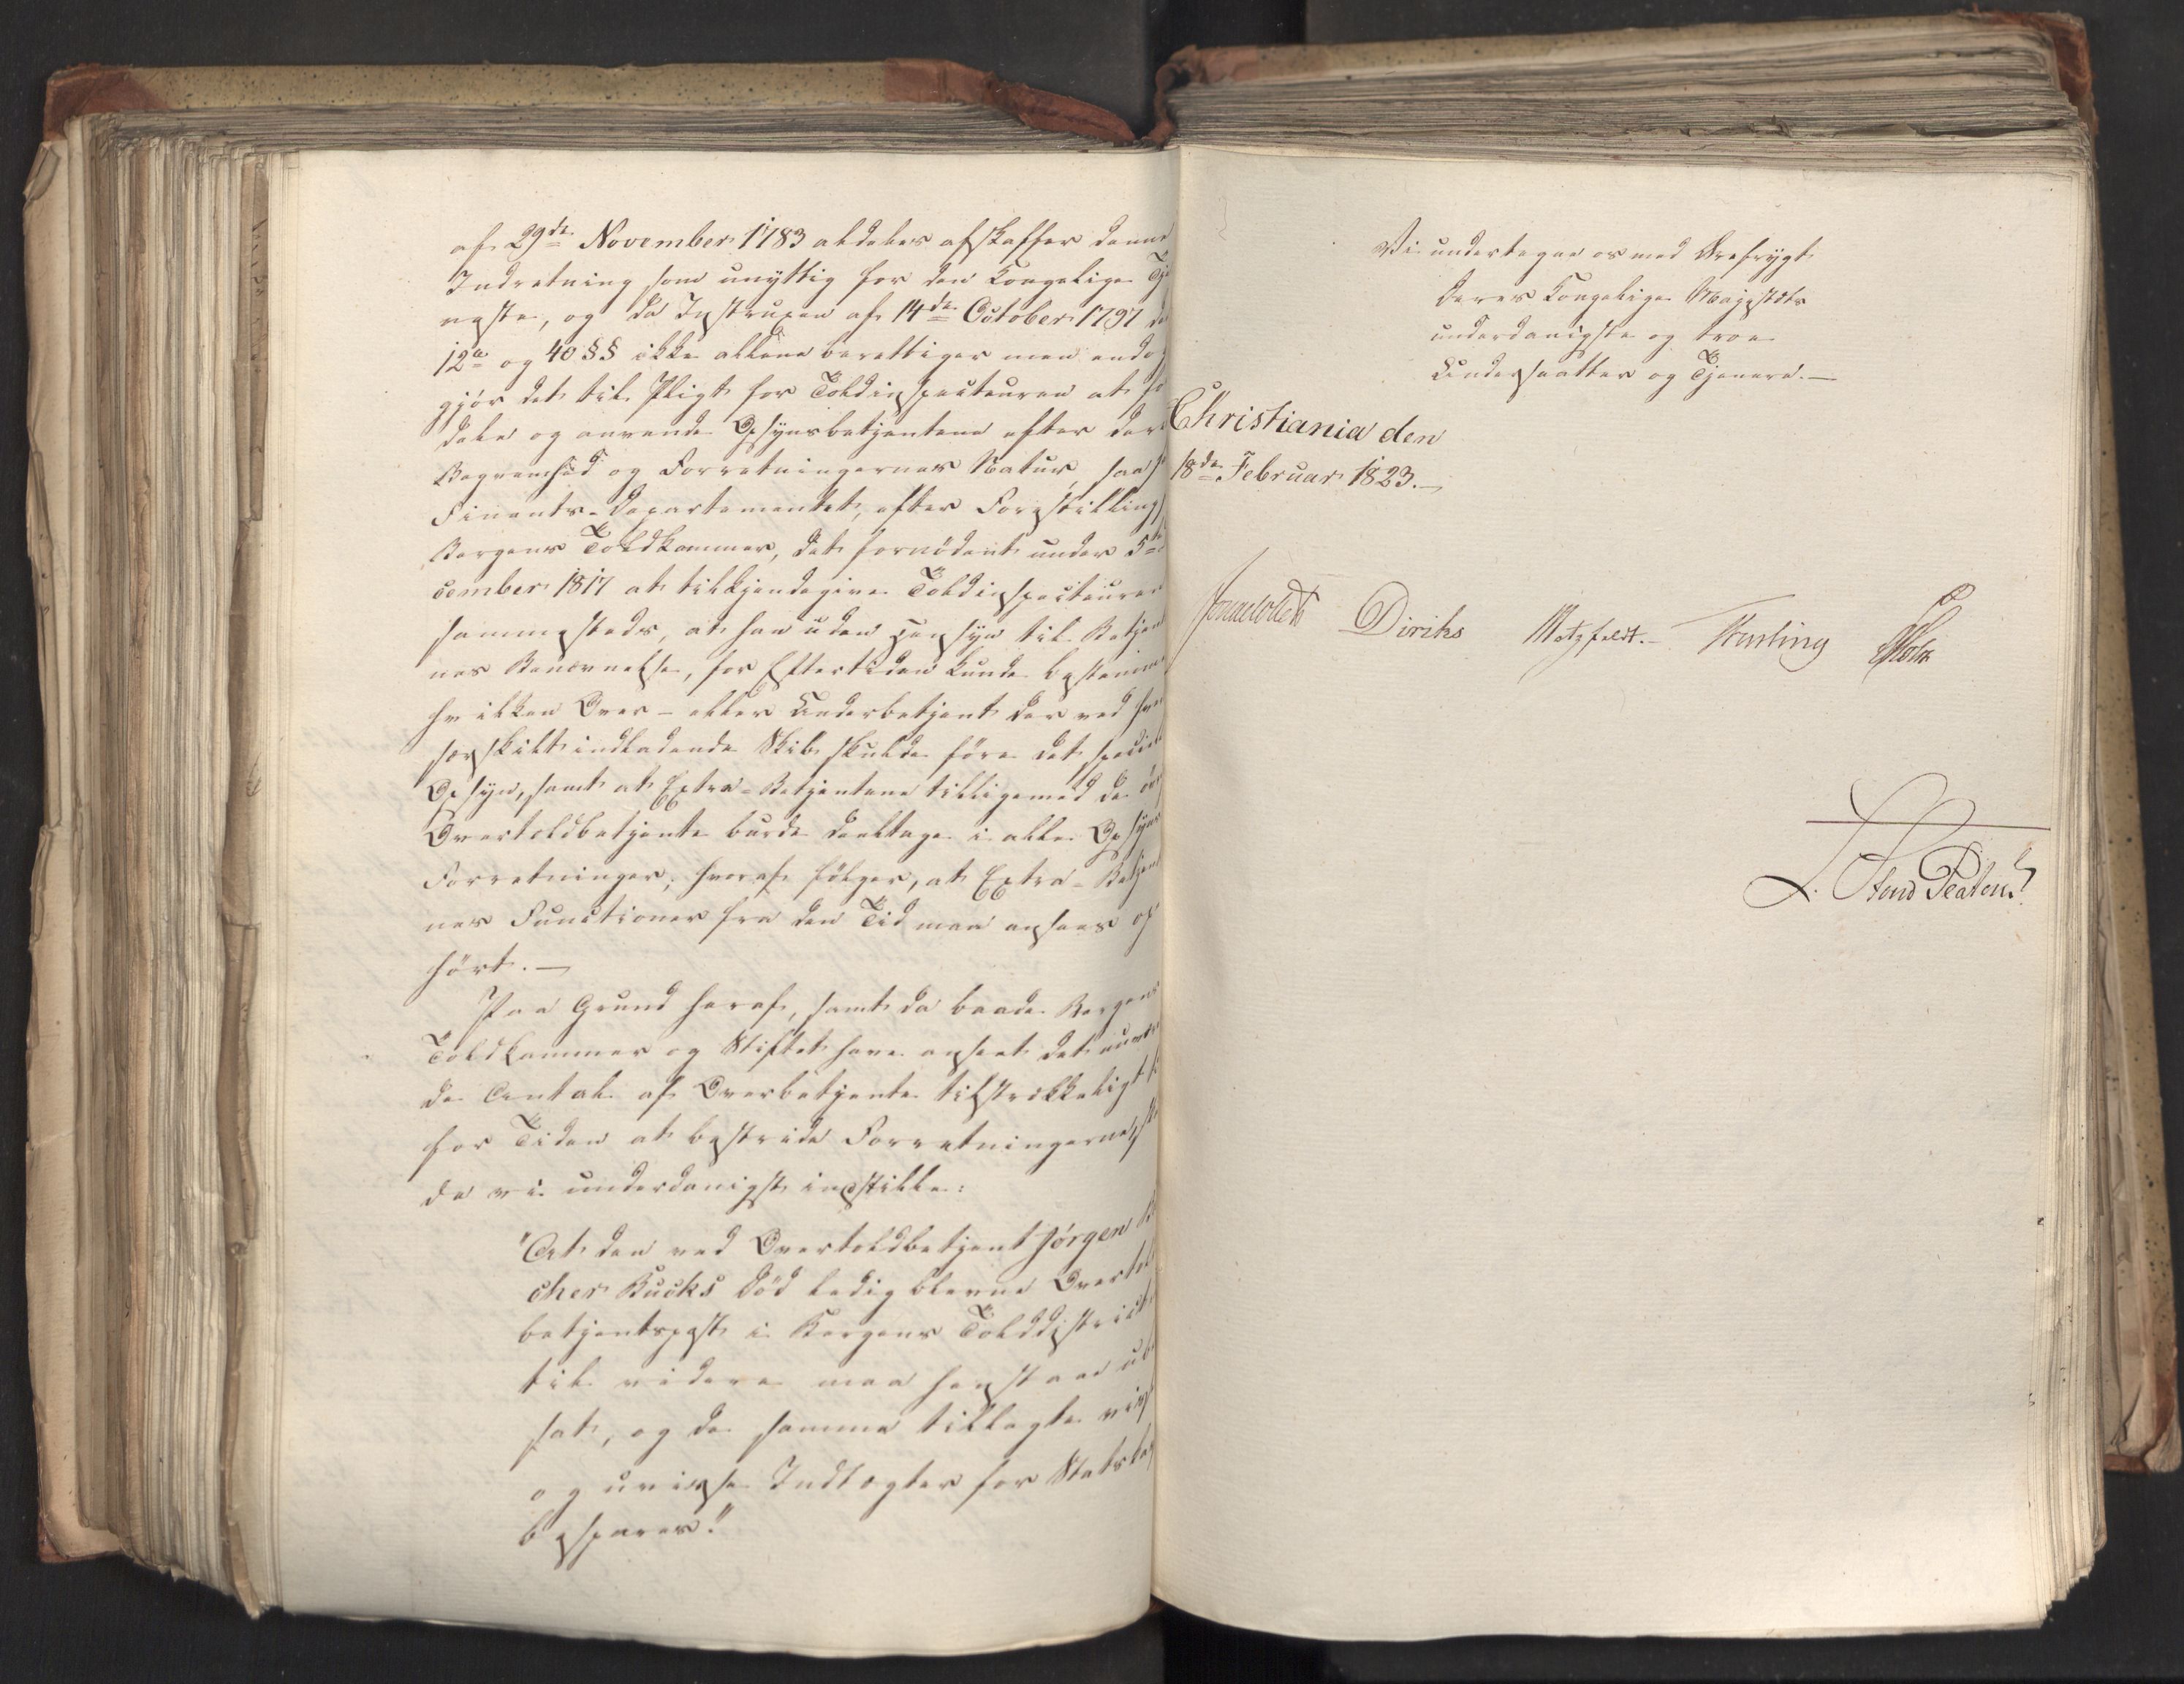 af 29de November 1783 aldeles afskaffer denne
Indretning som unyttig for den Kongelige Tje
neste, og da Instruxen af 14de October 1797 de
12te og 40 §§ ikke allene berettiger men endog
gjør det til Pligt for Toldinspecteuren at for
dele og anvende Opsynsbetjentene efter deres
Beqvemhed og Forretningernes Natur, saa
Finants-Departementet, efter Forestilling
Bergens Toldkammer, det fornødent under 5te
cember 1817 at tilkjendegive Toldinspecteuren
sammesteds, at han uden Hensyn til Betjent
nes Benævnelse, for Eftertiden kunde bestemme
hvilken Over- eller Underbetjent der ved hver
særskilt indladende Skib skulde føre det speciel
Opsyn, samt at Extra-Betjentene tilligemed de øv
Overtoldbetjente burde deeltage i alle Opsyns
Forretninger; hvoraf følger, at Extra-Betjent
nes Functioner fra den Tid maa ansees op
hørt.—
Paa Grund heraf, samt da baade Bergens
Toldkammer og Stiftet have anseet det nuvæ
de Antal af Overbetjente tilstrækkeligt
for Tiden at bestride Forretningerne,
de vi underdanigst indstille:
"At den ved Overtoldbetjent Jørgen B
cher Bucks Død ledig blevne Overtold
betjentpost i Bergens Tolddistrict
til videre maa henstaae ube
sat, og de samme tillagte visse
og uvisse Indtægter for Statskas
besparer."
Vi undertegne os med Ærefrygt
Deres Kongelige Majestæts
underdanigste og troe
Undersaatter og Tjenere.—
Christiania den
18de Februar 1823.—
Diriks Motzfeldt.— Fasting Holst